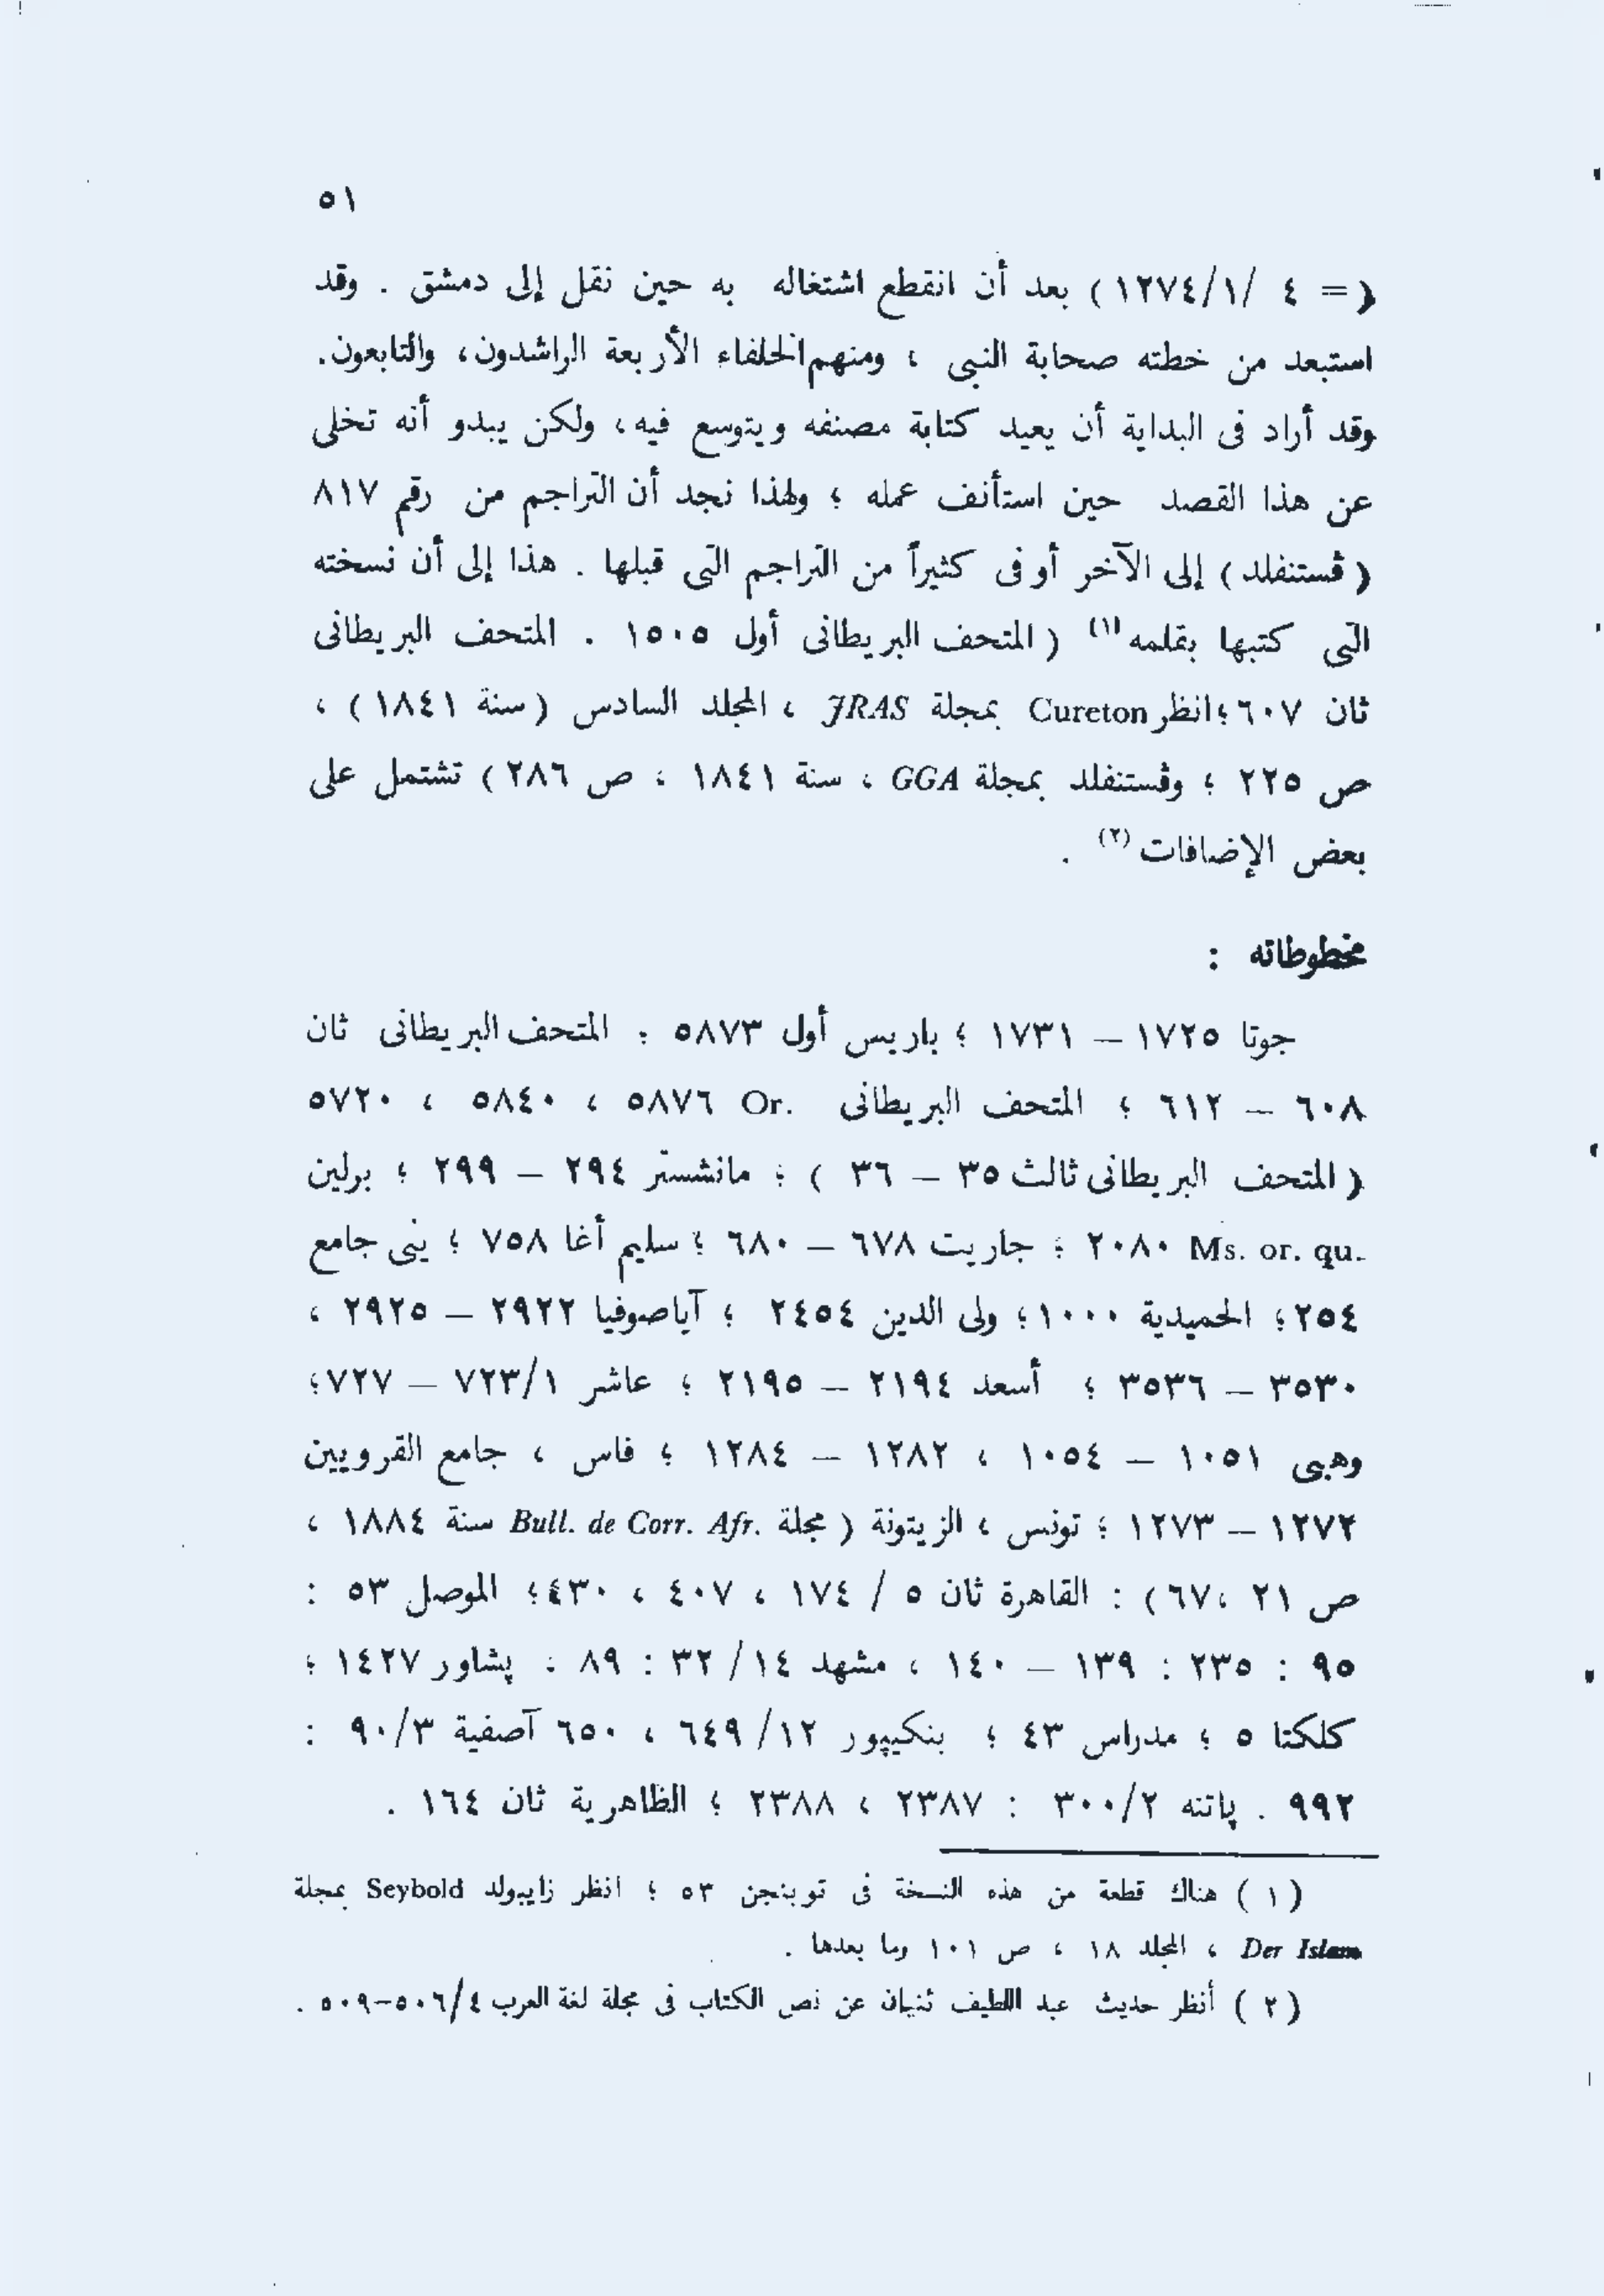 ٥١
( = ٤ /١/١٢٧٤ ) بعد أن انقطع اشتغاله به حين نقل إلى دمشق . وقد
استبعد من خطته صحابة النبى ، ومنهم الخلفاء الأربعة الراشدون، والتابعون.
وقد أراد فى البداية أن يعيد كتابة مصنفه ويتوسع فيه، ولكن يبدو أنه تخلى
عن هذا القصد حين استأنف عمله ؛ ولهذا نجد أن التراجم من رقم ٨١٧
( ڤستنفلد ) إلى الآخر أوفى كثيراً من التراجم التى قبلها . هذا إلى أن نسخته
التى كتبها بقلمه (١) ( المتحف البريطانى أول ١٥٠٥ . المتحف البريطانى
ثان ٦٠٧ ؛ انظر Cureton بمجلة JRAS ، المجلد السادس ( سنة ١٨٤١ ) ،
ص ٢٢٥ ؛ وڤستنفلد بمجلة GGA ، سنة ١٨٤١ ، ص ٢٨٦ ) تشتمل على
بعض الإضافات (٢) .
مخطوطاته :
جوتا ١٧٢٥ – ١٧٣١ ؛ باريس أول ٥٨٧٣ ؛ المتحف البريطانى ثان
٦٠٨ – ٦١٢ ؛ المتحف البريطانى Or. ٥٨٧٦ ، ٥٨٤٠ ، ٥٧٢٠
( المتحف البريطانى ثالث ٣٥ – ٣٦ ) ؛ مانشستر ٢٩٤ – ٢٩٩ ؛ برلين
Ms. or. qu. ٢٠٨٠ ؛ جاريت ٦٧٨ – ٦٨٠ ؛ سليم أغا ٧٥٨ ؛ ينى جامع
٢٥٤ ؛ الحميدية ١٠٠٠ ؛ ولى الدين ٢٤٥٤ ؛ آياصوفيا ٢٩٢٢ – ٢٩٢٥ ،
٣٥٣٠ – ٣٥٣٦ ؛ أسعد ٢١٩٤ – ٢١٩٥ ؛ عاشر ٧٢٣/١ – ٧٢٧ ؛
وهبى ١٠٥١ – ١٠٥٤ ، ١٢٨٢ – ١٢٨٤ ؛ فاس ، جامع القرويين
١٢٧٢ – ١٢٧٣ ؛ تونس ، الزيتونة ( مجلة Bull. de Corr. Afr. سنة ١٨٨٤ ،
ص ٢١ ، ٦٧ ) : القاهرة ثان ٥ / ١٧٤ ، ٤٠٧ ، ٤٣٠ ؛ الموصل ٥٣ :
٩٥ : ٢٣٥ : ١٣٩ – ١٤٠ ، مشهد ١٤ / ٣٢ : ٨٩ : پشاور ١٤٢٧ ؛
كلكتا ٥ ؛ مدراس ٤٣ ؛ بنكيپور ١٢/ ٦٤٩ ، ٦٥٠ آصفية ٩٠/٣ :
٩٩٢ . پاتنه ٣٠٠/٢ : ٢٣٨٧ ، ٢٣٨٨ ؛ الظاهرية ثان ١٦٤ .
( ١ ) هناك قطعة من هذه النسخة فى توبنجن ٥٣ ؛ انظر زايبولد Seybold بمجلة
Der Islam ، المجلد ١٨ ، ص ١٠١ وما بعدها .
( ٢ ) أنظر حديث عبد اللطيف ثنيان عن نص الكتاب فى مجلة لغة العرب ٥٠٦/٤–٥٠٩ .